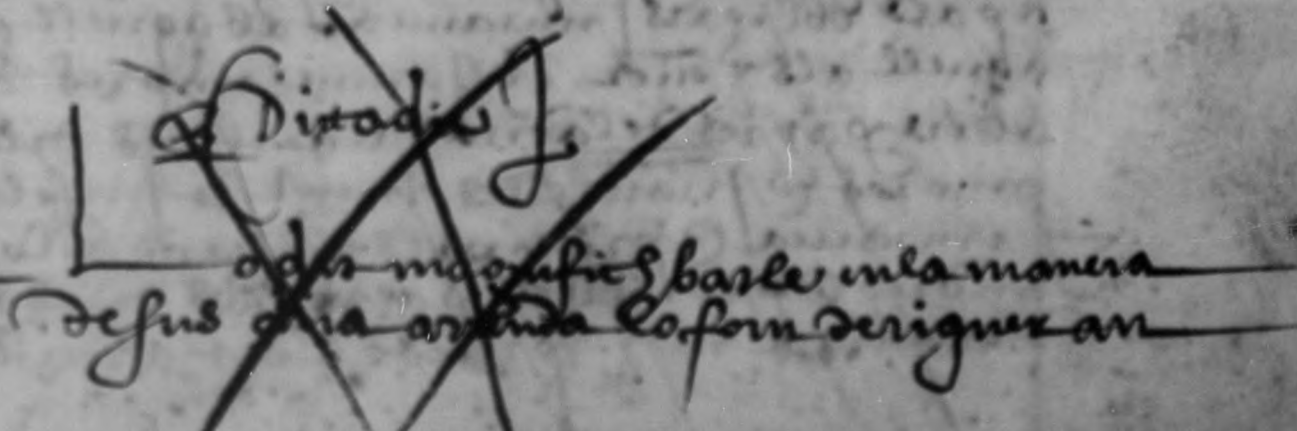 Dictadie
Lo dit magnifich batle en la manera
desus dita arrenda lo forn de riguer an